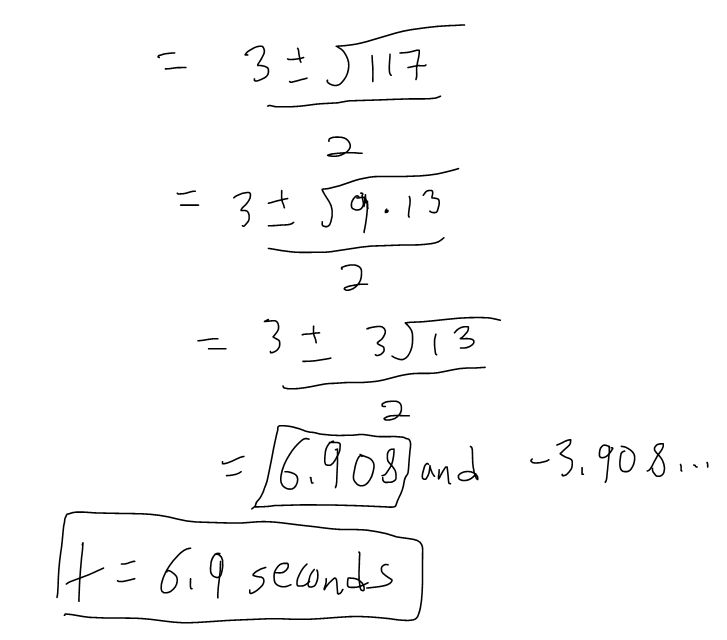 = 3 ± √117
2
= 3 ± √9.13
2
= 3 ± 3√13
2
= 6.908 and -3.908...
t = 6.9 seconds